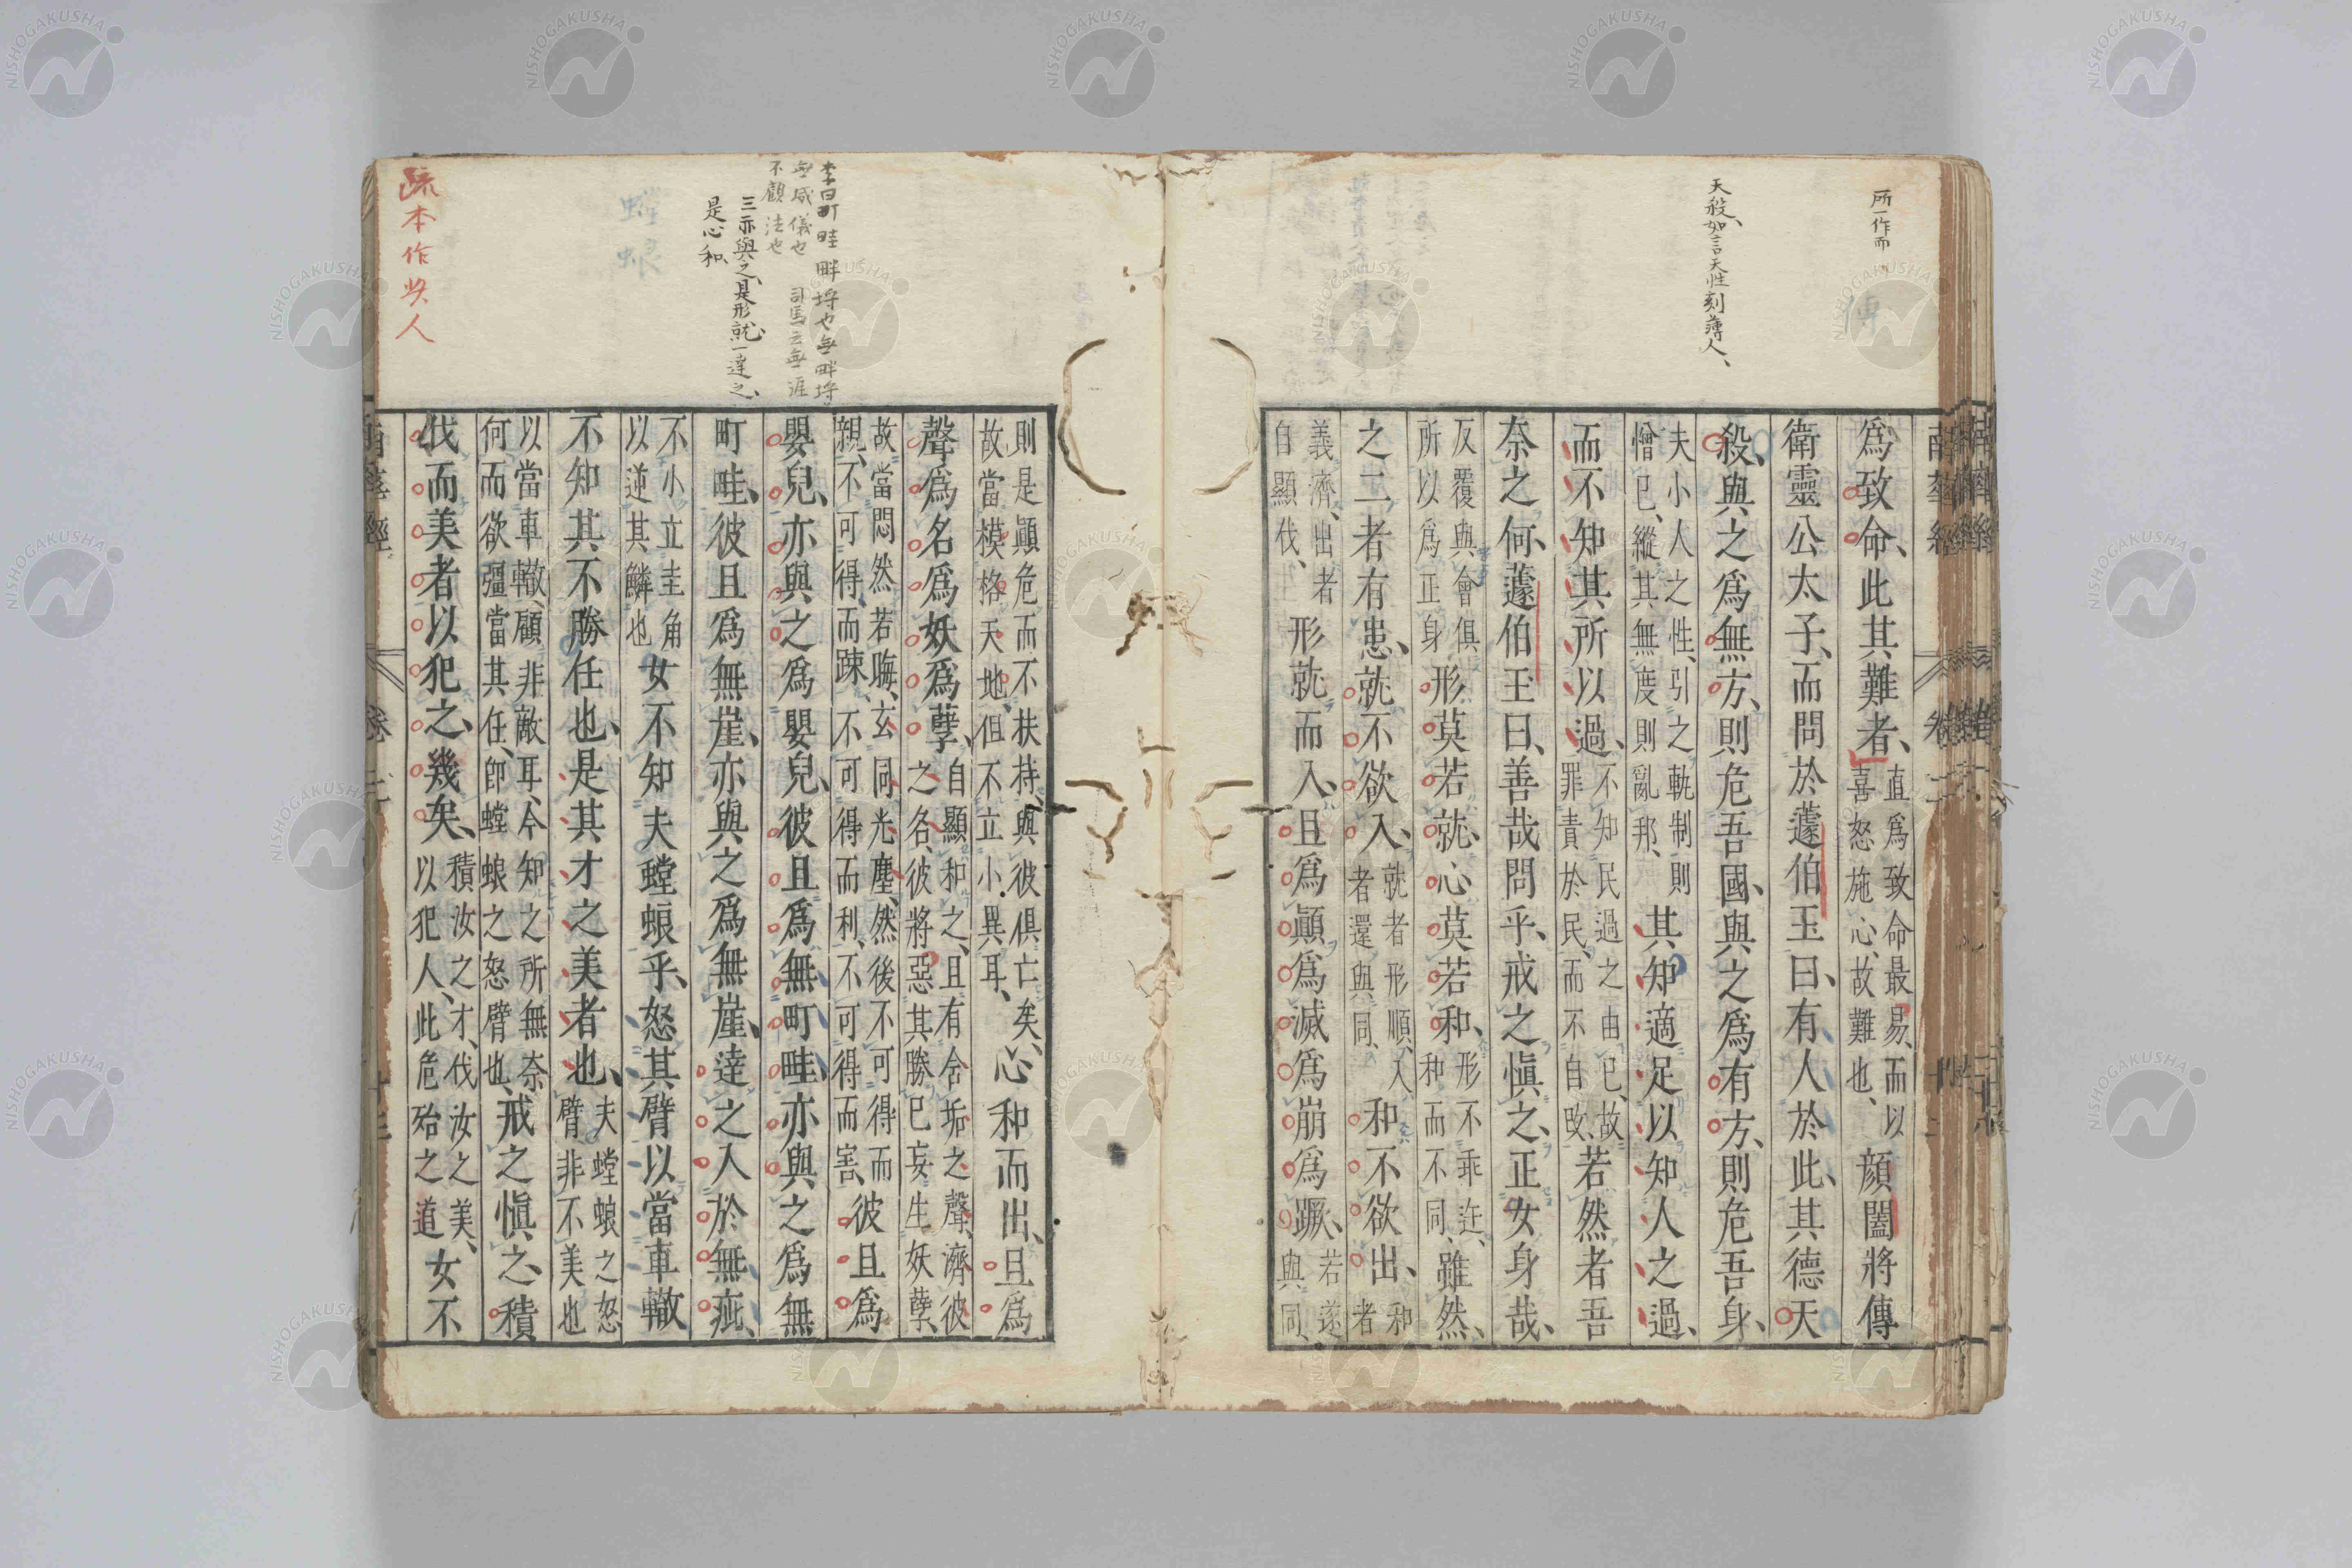 所一作而
天殺、如言天性刻薄人、
爲致命、此其難者、直爲致命最易、而以喜怒施心、故難也、顔闔將傳
衛靈公太子、而問於蘧伯玉曰、有人於此、其德天
殺、與之爲無方、則危吾國、與之爲有方、則危吾身、
夫小人之性、引之軌制則憎已、縱其無度則亂邦、其知適足以知人之過、
而不知其所以過、不知民過之由已、故罪責於民、而不自改、若然者吾
奈之何、蘧伯玉曰、善哉問乎、戒之愼之、正女身哉、
反覆與會俱所以爲正身、形莫若就、心莫若和、形不乖迕、和而不同、雖然、
之二者有患、就不欲入、就者形順、入者還與同、和不欲出、和者
義濟、出者自顯伐、形就而入、且爲顚爲滅爲崩爲蹶、若遂與同、
李曰町畦畔埒也無畔埒
無威儀也 司馬云無涯
不顧法也
三亦與之、是形就、一達之、
是心和、
蟷蜋
疏本作汝人
則是顚危而不扶持、與彼俱亡矣、故當模格天地、但不立小異耳、心和而出、且爲
聲爲名爲妖爲孽、自顯和之、且有含垢之聲、濟彼之名、彼將惡其勝已妄生妖孽、
故當悶然若晦、玄同光塵、然後不可得而親、不可得而踈、不可得而利、不可得而害、彼且爲
嬰兒、亦與之爲嬰兒、彼且爲無町畦、亦與之爲無
町畦、彼且爲無崖、亦與之爲無崖、達之入於無疵、
不小立圭角以逆其鱗也女不知夫螳蜋乎、怒其臂以當車轍
不知其不勝任也、是其才之美者也、夫螳蜋之怒臂非不美也
以當車轍、顧非敵耳、今知之所無奈何而欲彊當其任、卽螳蜋之怒臂也、戒之愼之、積
伐而美者以犯之、幾矣、積汝之才、伐汝之美、以犯人、此危殆之道女不
南華經 卷二 十三